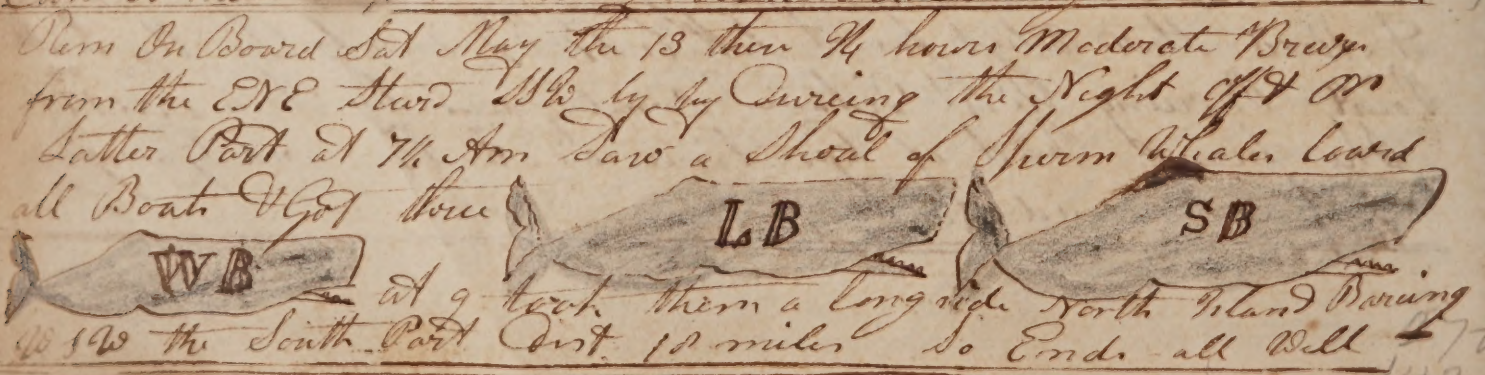 Rem On Board Sat May the 13 then 24 hours Moderate Brezes
from the ENE Sturd SSW by Dureing the Night off & on
Latter Part at 7 Am Saw a Shoal of Sperm Whales loward
all Boats & Got three LB SB
WB at 9 took them a long side North Island Baring
W S W the South Part Dist 18 miles So Ends all Well